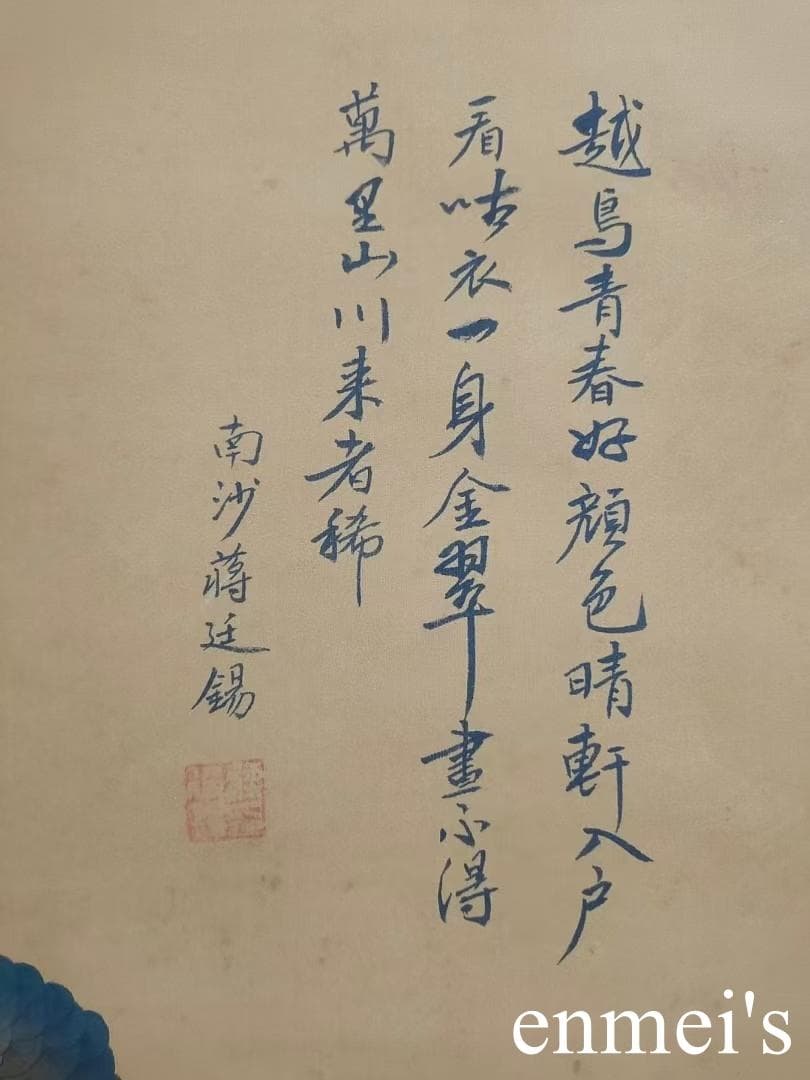 越鳥青春好顏色晴軒入户
看呫衣一身金翠畫不得
萬里山川来者稀
南沙蔣廷錫
enmei's